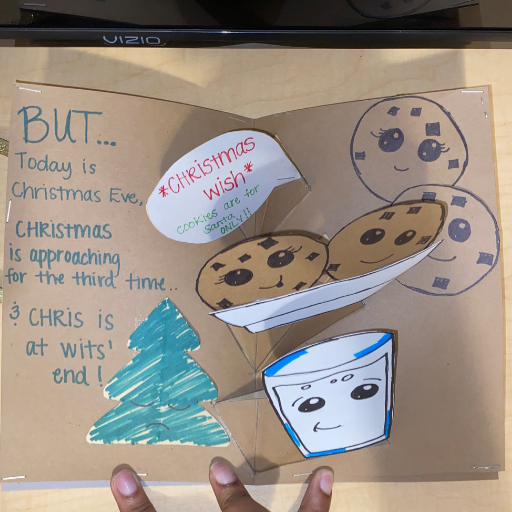 VIZIO
BUT...
Today is
Christmas Eve,
CHRISTMAS
is approaching
for the third time..
& CHRIS is
at wits'
end!
*CHRISTMAS
WISH*
COOKIES are for
Santa
ONLY!!